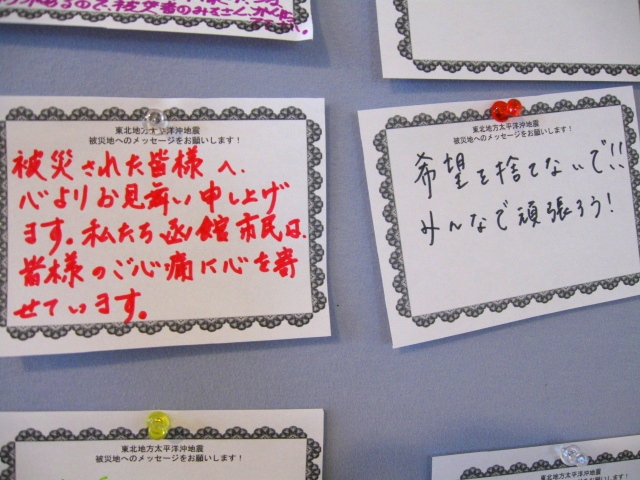 東北地方太平洋沖地震
被災地へのメッセージをお願いします！
被災された皆様へ、
心よりお見舞い申し上げ
ます。私たち函館市民は、
皆様のご心痛に心を寄
せています。
東北地方太平洋沖地震
被災地へのメッセージをお願いします！
希望を捨てないで!!
みんなで頑張ろう!
東北地方太平洋沖地震
被災地へのメッセージをお願いします！
東北地方太平洋沖地震
被災地へのメッセージをお願いします！